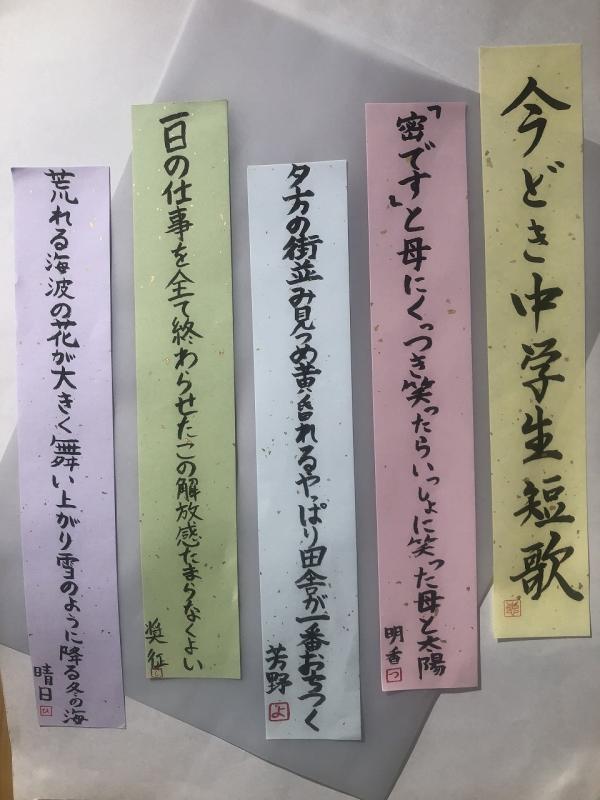 今どき中学生短歌
「密です」と母にくっつき笑ったらいっしょに笑った母と太陽
明香
つ
夕方の街並み見つめ黄昏れるやっぱり田舎が一番おちつく
芳野
よ
一日の仕事を全て終わらせたこの解放感たまらなくよい
奨征
荒れる海波の花が大きく舞い上がり雪のように降る冬の海
晴日
ひ